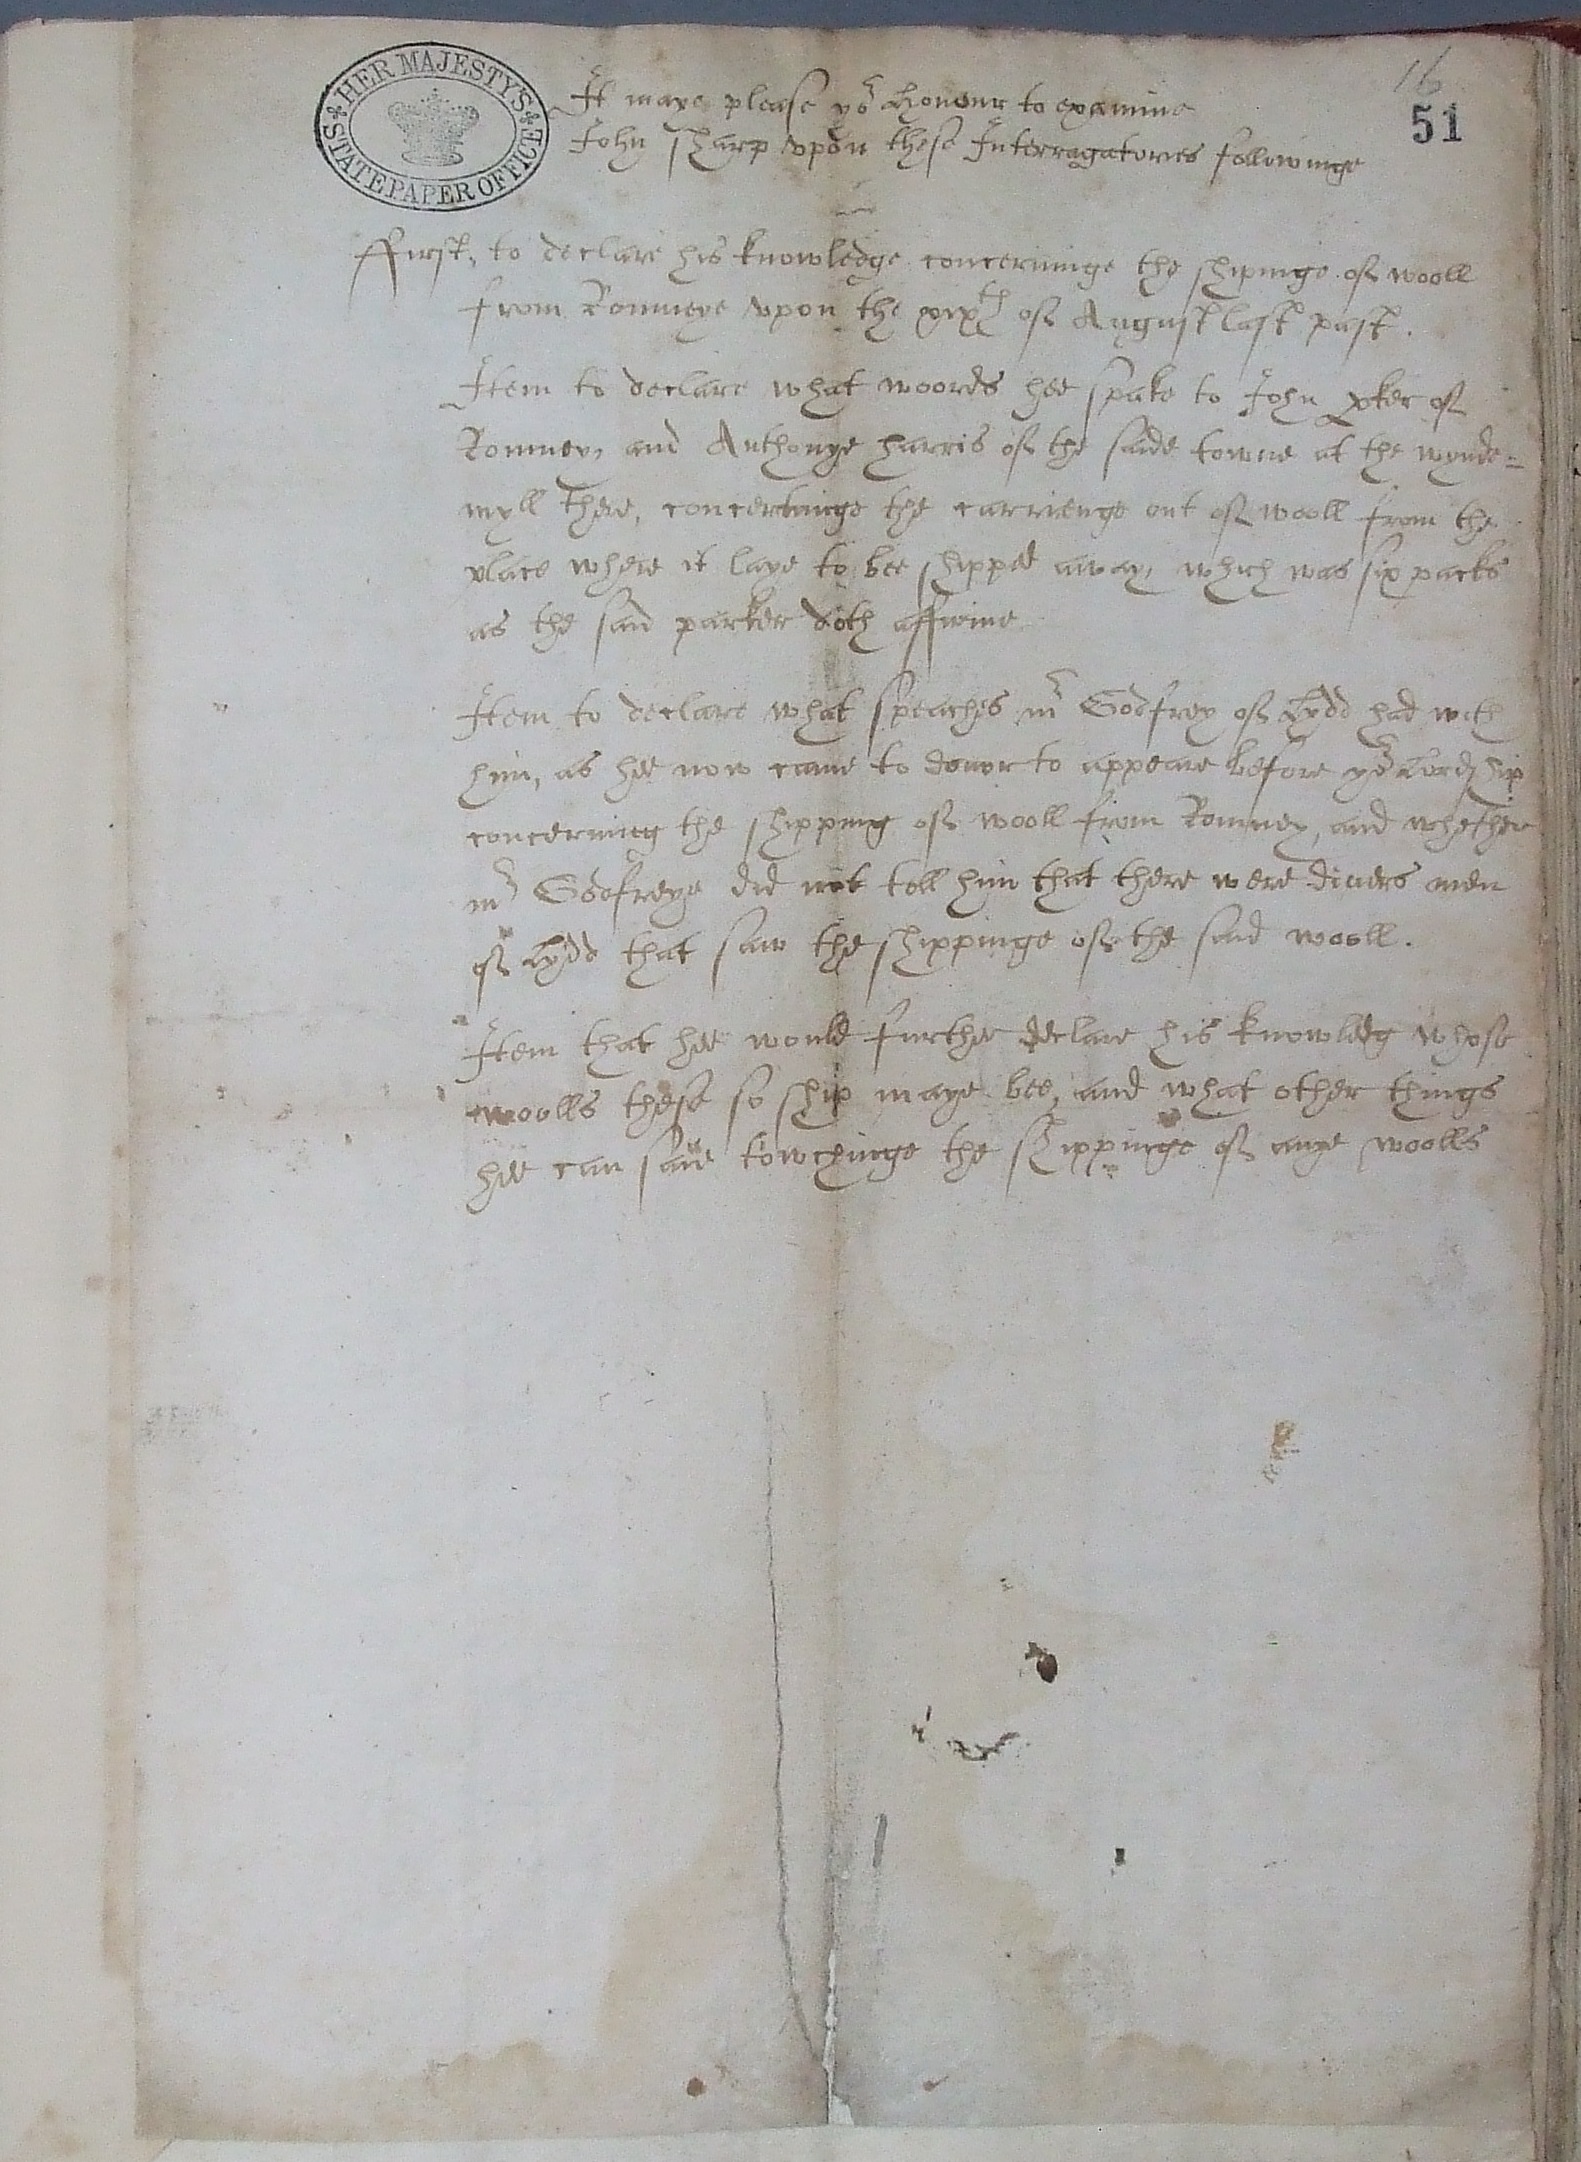 HER MAJESTY'S
STATE PAPER OFFICE
16
51
It maye please yor Honour to examine
John Sharp vpon these Interragatories followinge
ffirst, to declare his knowledge concerninge the shipinge of wooll
from Romneye vpon the xixth of August last past.
Item to declare what woords hee spake to John pker of
Romney, and Anthonye Harris of the saide towne at the wynde=
myll there, concerninge the carrienge out of wooll from the
place where it laye to bee shipped away, which was six packs
as the said parker doth affirme
Item to declare what speaches mr Godfrey of Lydd had with
him, as hee now came to douer to appeare before yor Lordship
concerning the shipping of wooll from Romney, and whether
mr Godfreye did not tell him that there were diuers men
of Lydd that saw the shippinge of the said wooll.
Item that hee would further declare his knowledg whose
woolls these so ship maye bee, and what other things
hee can saie towchinge the shippinge of anye woolls